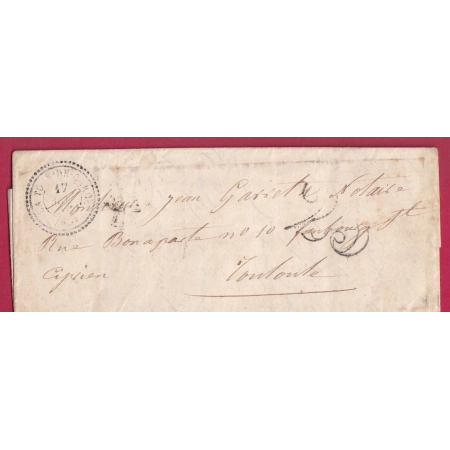 17
Monsieur Jean Gariet Notaire
Rue Bonaparte no 10 faubourg St
Ciprien
Toulouse
25